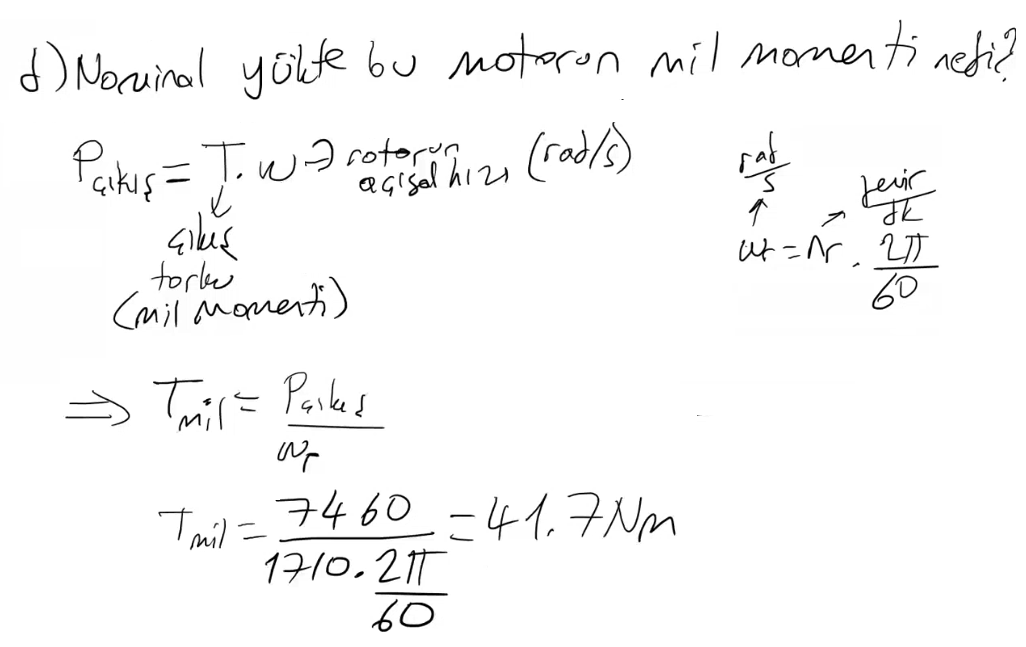 d) Nominal yükte bu motorun mil momenti nedir?
Pçıkış = T. w → rotorun açısal hızı (rad/s)
çıkış
torku
(mil momenti)
rad/s devir/dk
wr = nr . 2π/60
⇒ Tmil = Pçıkış/wr
Tmil = 7460/(1710. 2π/60) = 41.7 Nm